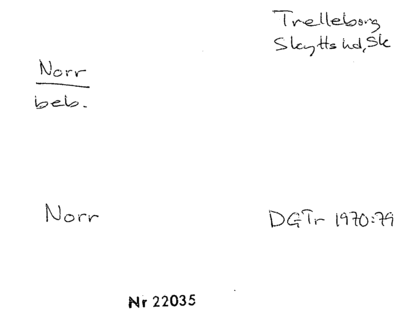 Trelleborg
Skytts hd, Sk
Norr
beb.
Norr
DGTr 1970:79
Nr 22035